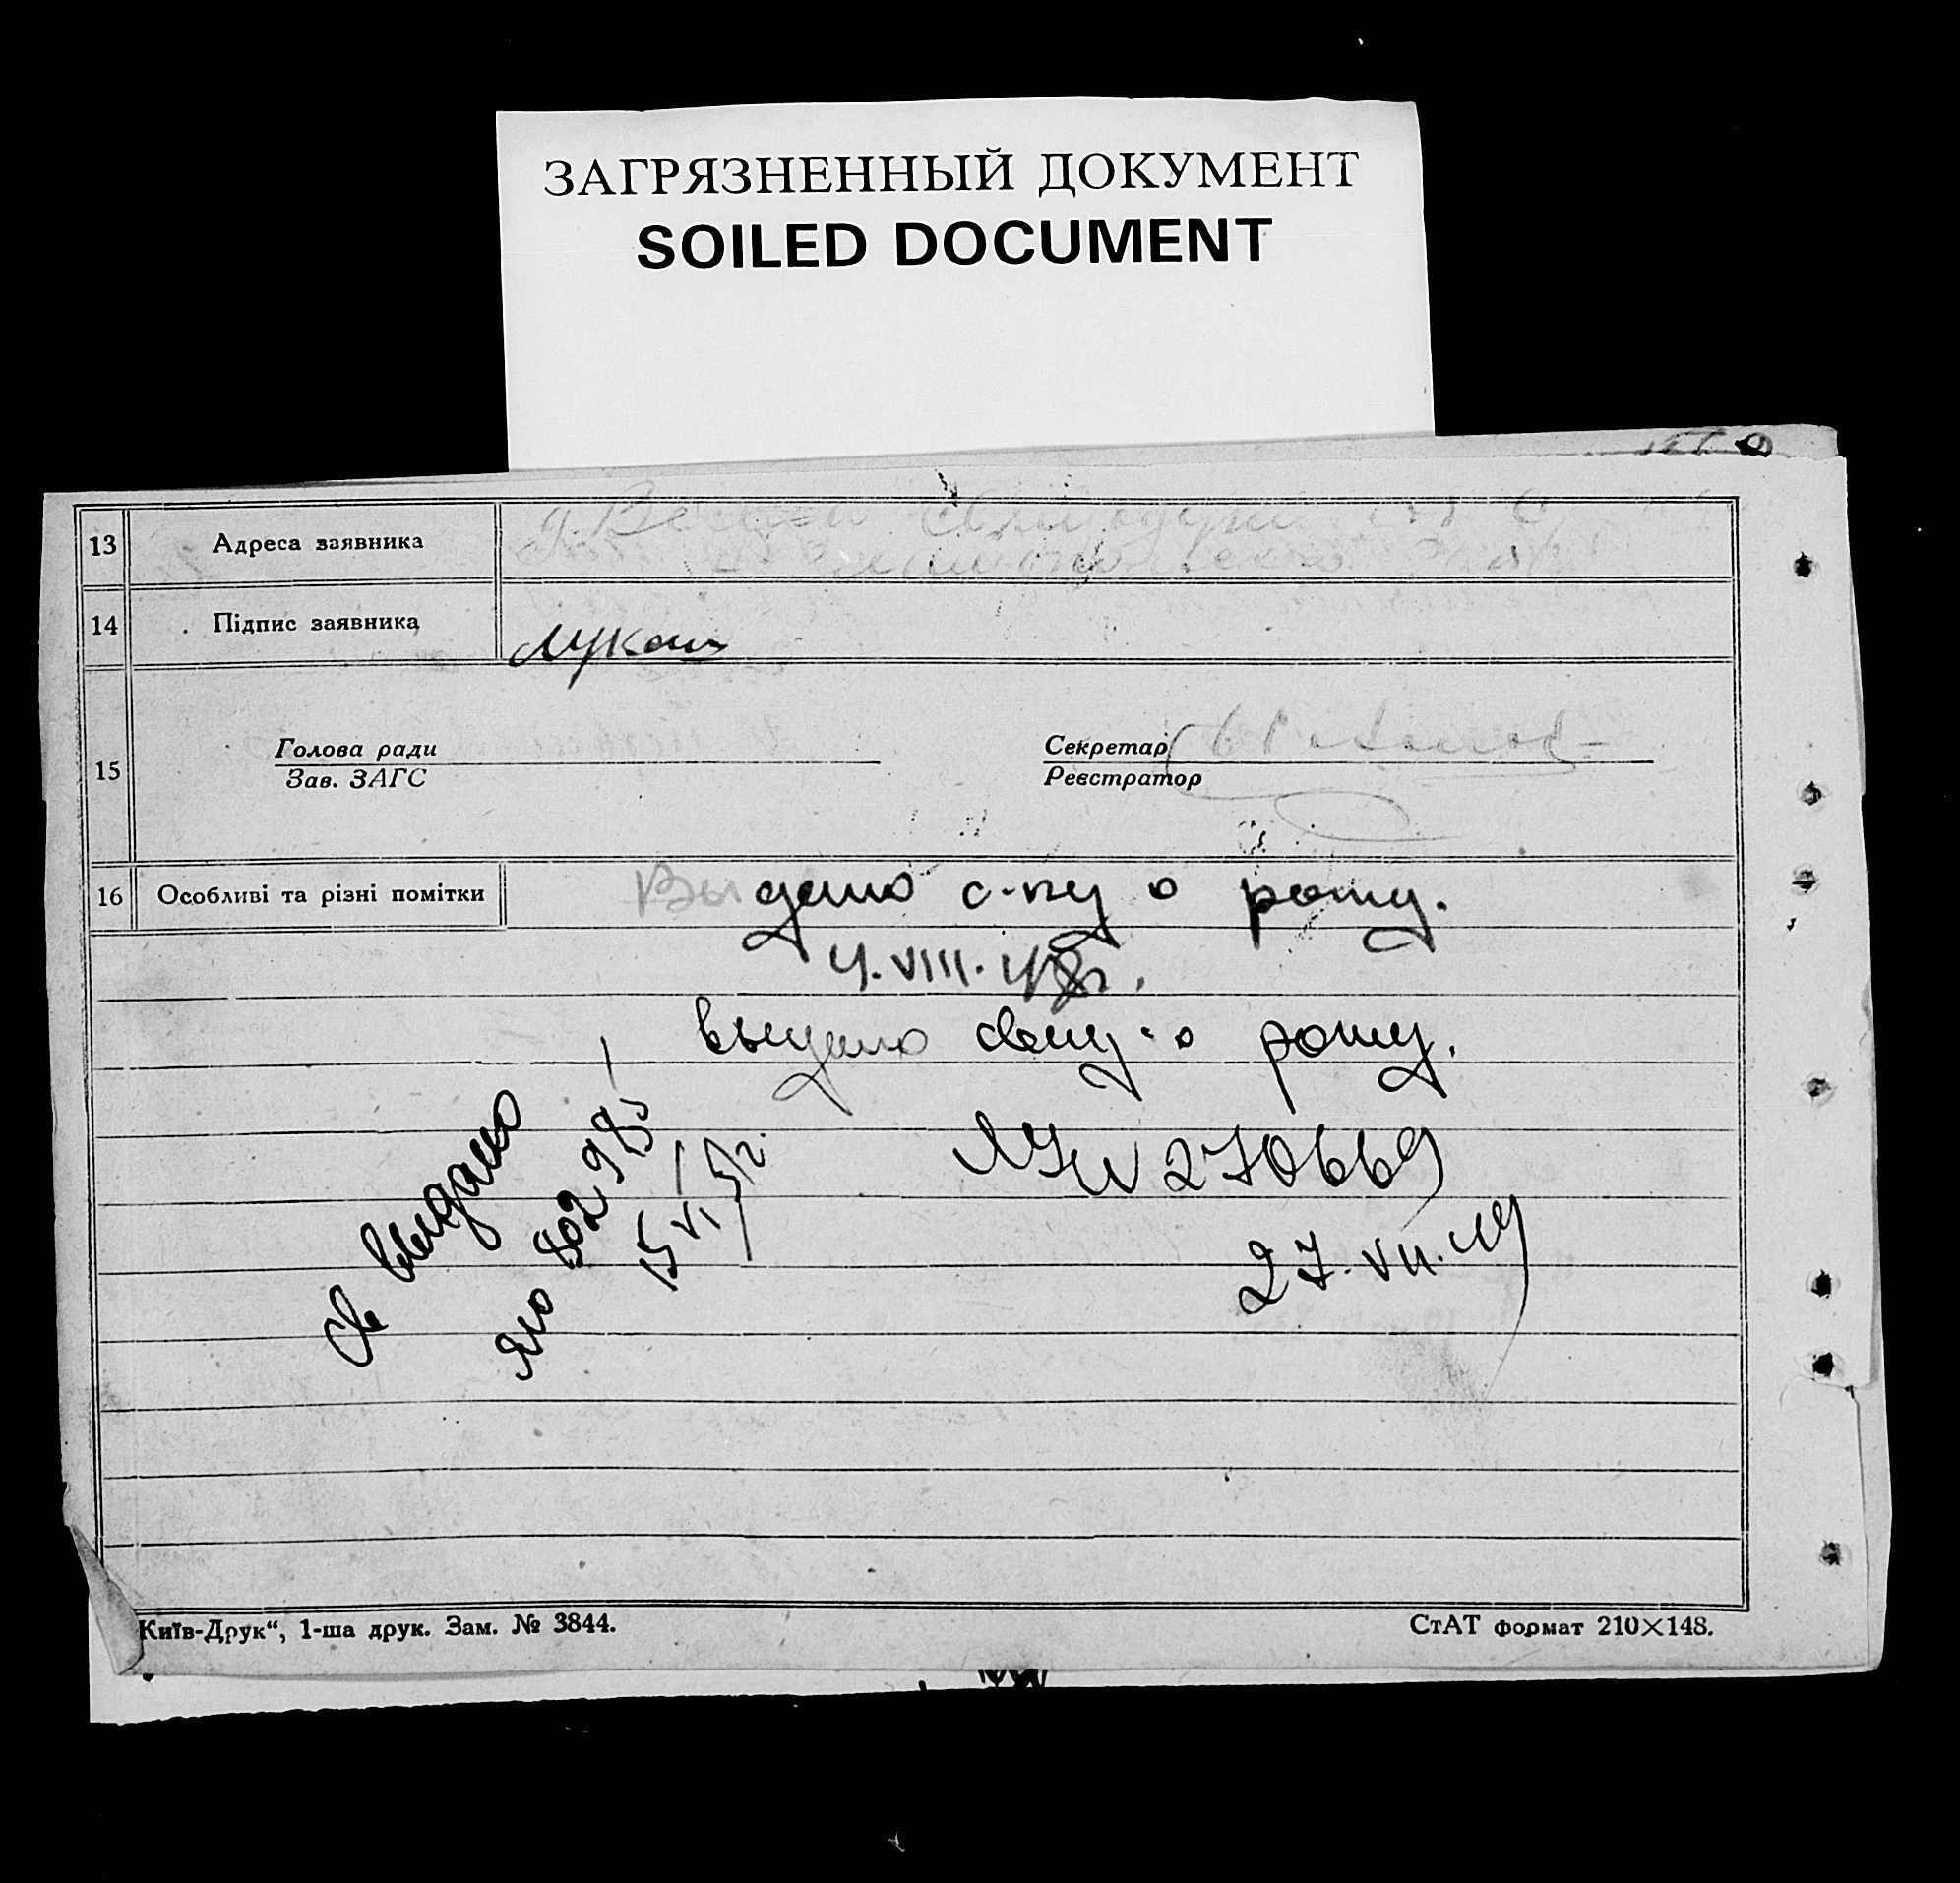 ЗАГРЯЗНЕННЫЙ ДОКУМЕНТ
SOILED DOCUMENT
13 Адреса заявника
14 Підпис заявника Лукаш
15 Голова ради Секретар
Зав. ЗАГС Реєстратор
16 Особливі та різні помітки Выдано с-ку о рожд.
4.VIII.48г.
выдано свид-о рожд.
№ 270669
27.VII.49
Св выдано
ЯЮ 802985
15 VI 51г.
Київ-Друк“, 1-ша друк. Зам. № 3844.
СтАТ формат 210×148.